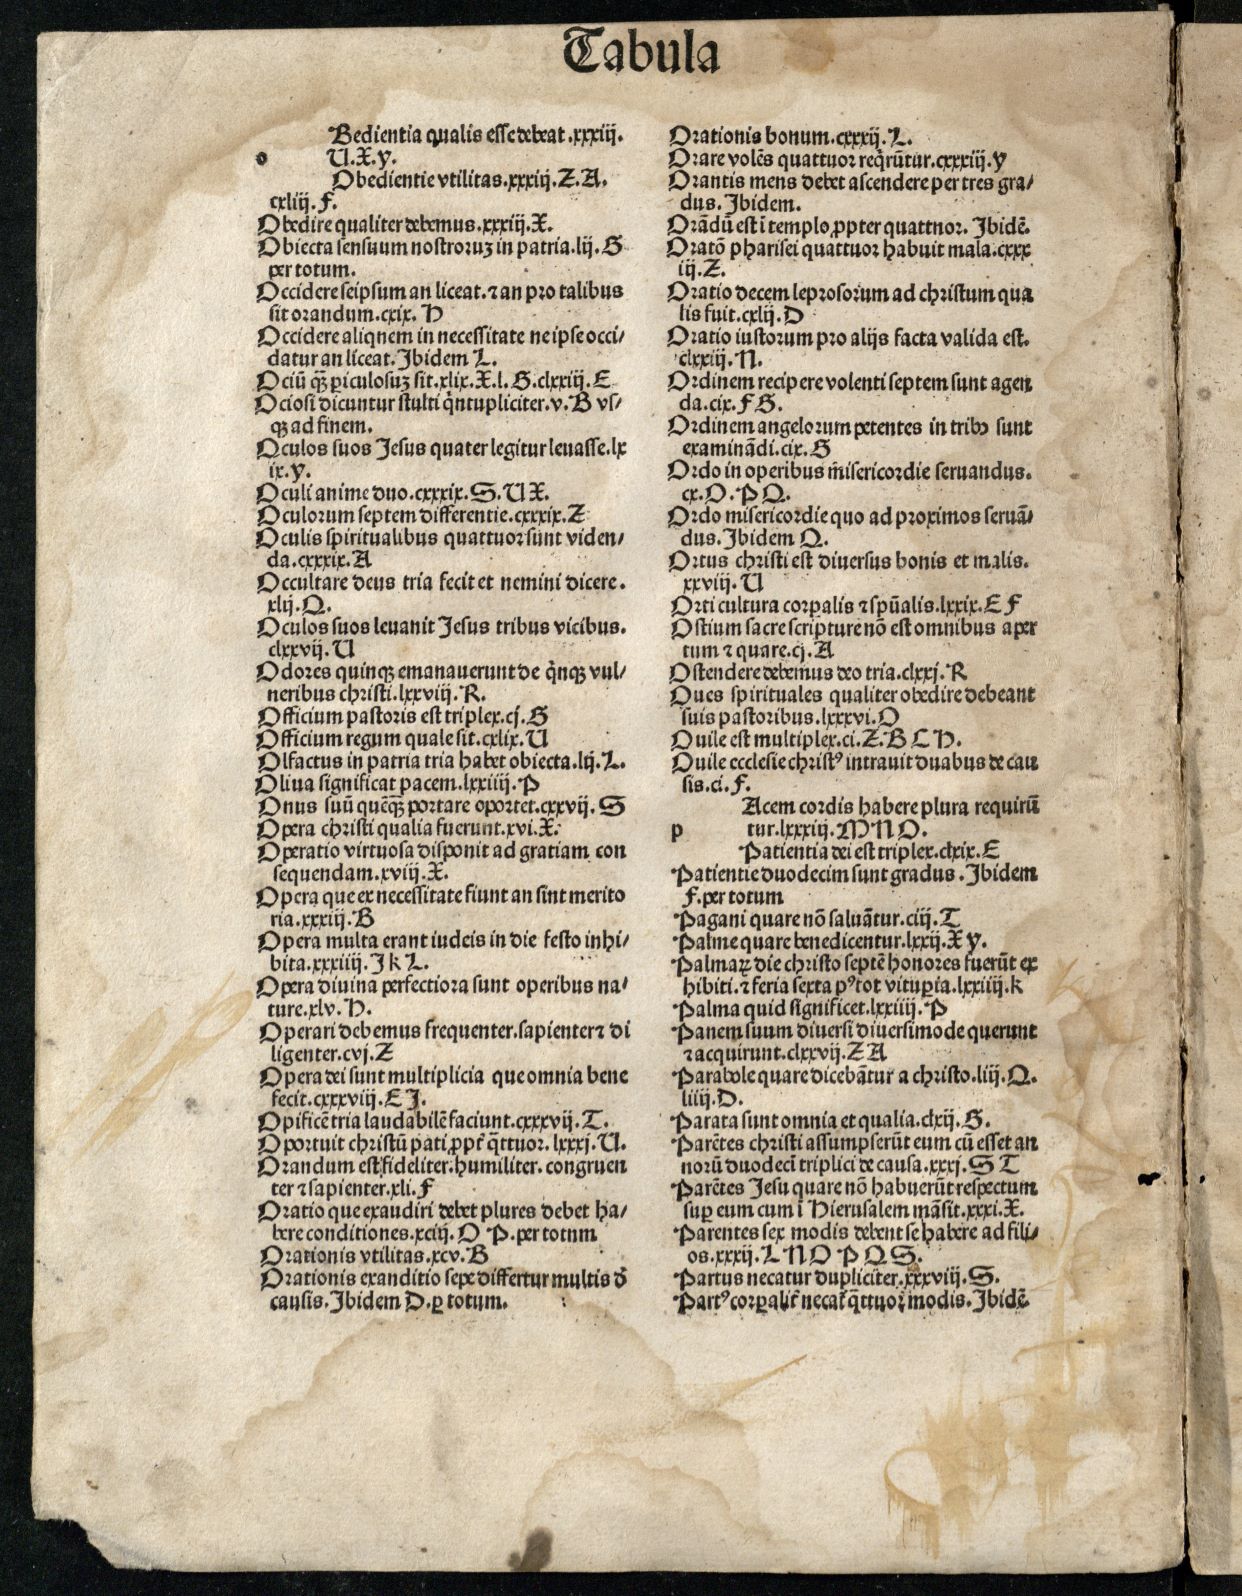 Tabula
Bedientia qualis esse debeat .xxxiij.
o U.X.y.
Obedientie vtilitas.xxxiij.Z.A.
cxliij.F.
Obedire qualiter debemus.xxxiij.X.
Obiecta sensuum nostroruʒ in patria.lij.G
per totum.
Occidere seipsum an liceat.⁊ an pro talibus
sit orandum.cxix.H
Occidere aliqnem in necessitate ne ipse occi/
datur an liceat.Ibidem L.
Ociū qꝫ̄ ꝑiculosuʒ sit.xlix.X.l.G.clxxiij.E
Ociosi dicuntur stulti qͥntupliciter.v.B vs/
qꝫ ad finem.
Oculos suos Jesus quater legitur leuasse.lx
ix.y.
Oculi anime duo.cxxxix.S.U X.
Oculorum septem differentie.cxxxix.Z
Oculis spiritualibus quattuor sunt viden/
da.cxxxix.A
Occultare deus tria fecit et nemini dicere.
xlij.Q.
Oculos suos leuanit Jesus tribus vicibus.
clxxvij.U
Odores quinqꝫ emanauerunt de qͥnqꝫ vul/
neribus christi.lxxviij.R.
Officium pastoris est triplex.cj.G
Officium regum quale sit.cxlix.U
Olfactus in patria tria habet obiecta.lij.L.
Oliua significat pacem.lxxiiij.P
Onus suū quēqꝫ̄ portare oportet.cxxvij.S
Opera christi qualia fuerunt.xvi.X.
Operatio virtuosa disponit ad gratiam con
sequendam.xviij.X.
Opera que ex necessitate fiunt an sint merito
ria.xxxiij.B
Opera multa erant iudeis in die festo inhi/
bita.xxxiiij.J k L.
Opera diuina perfectiora sunt operibus na/
ture.xlv.H.
Operari debemus frequenter.sapienter⁊ di
ligenter.cvj.Z
Opera dei sunt multiplicia que omnia bene
fecit.cxxxviij.E J.
Opificē tria laudabilē faciunt.cxxxvij.T.
Oportuit christū pati ꝓpt̄ qͣttuor.lxxxj.U.
Orandum est fideliter.humiliter.congruen
ter ⁊ sapienter.xli.F
Oratio que exaudiri debet plures debet ha/
bere conditiones.xciij.O P.per totnm
Orationis vtilitas.xcv.B
Orationis exanditio sepe differtur multis d̄
causis.Ibidem D.ꝑ totum.
Orationis bonum.cxxxij.L.
Orare volēs quattuor reqͥrūtur.cxxxiij.y
Orantis mens debet ascendere per tres gra/
dus.Ibidem.
Orādū est ī templo ꝓpter quattnor. Ibidē.
Oratō pharisei quattuor habuit mala.cxxx
iij.Z.
Oratio decem leprosorum ad christum qua
lis fuit.cxlij.D
Oratio iustorum pro alijs facta valida est.
clxxiij.N.
Ordinem recipere volenti septem sunt agen
da.cix.F G.
Ordinem angelorum petentes in tribꝰ sunt
examinādi.cix.G
Ordo in operibus m̄isericordie seruandus.
cx.O.P Q.
Ordo misericordie quo ad proximos seruā/
dus.Ibidem Q.
Ortus christi est diuersus bonis et malis.
xxviij.U
Orti cultura corꝑalis ⁊ spūalis.lxxix.E F
Ostium sacre scripture nō est omnibus aper
tum ⁊ quare.cj.A
Ostendere debemus deo tria.clxxj.R
Oues spirituales qualiter obedire debeant
suis pastoribus.lxxxvi.O
Ouile est multiplex.ci.Z.B C H.
Ouile ecclesie christꝰ intrauit duabus de cau
sis.ci.F.
Acem cordis habere plura requirū
p tur.lxxxiij.M N O.
Patientia dei est triplex.clxix.E
Patientie duodecim sunt gradus.Ibidem
F.per totum
Pagani quare nō saluātur.ciij.T
Palme quare benedicentur.lxxij.X y.
Palmaꝝ die christo septē honores fuerūt ex
hibiti.⁊ feria sexta pꝰ tot vituꝑia.lxxiiij.k
Palma quid significet.lxxiiij.P
Panem suum diuersi diuersimode querunt
⁊ acquirunt.clxxvij.Z A
Parabole quare dicebātur a christo.liij.Q.
liiij.D.
Parata sunt omnia et qualia.clxij.G.
Parētes christi assumpserūt eum cū esset an
norū duodecī triplici de causa.xxxj.S T
Parētes Jesu quare nō habuerūt respectum
suꝑ eum cum ī Hierusalem māsit.xxxi.X.
Parentes sex modis debent se habere ad fili/
os.xxxij.L N O P Q S.
Partus necatur dupliciter.xxxviij.S.
Partꝰ corꝑalit̄ necat̄ qͣttuor modis.Ibidē